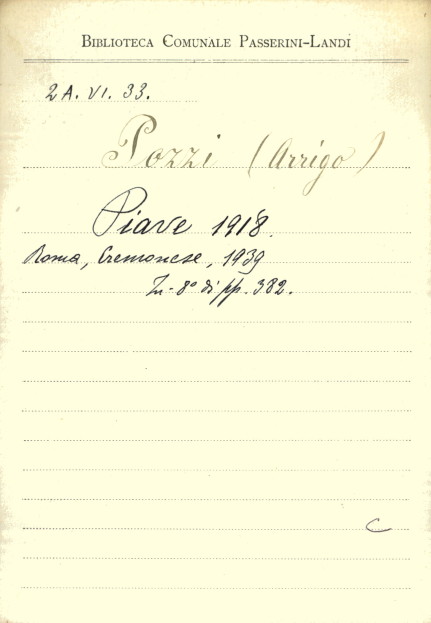 BIBLIOTECA COMUNALE PASSERINI-LANDI
2A. VI. 33.
Pozzi (Arrigo)
Piave 1918.
Roma, Cremonese, 1939
In-8° di pp. 382.
C